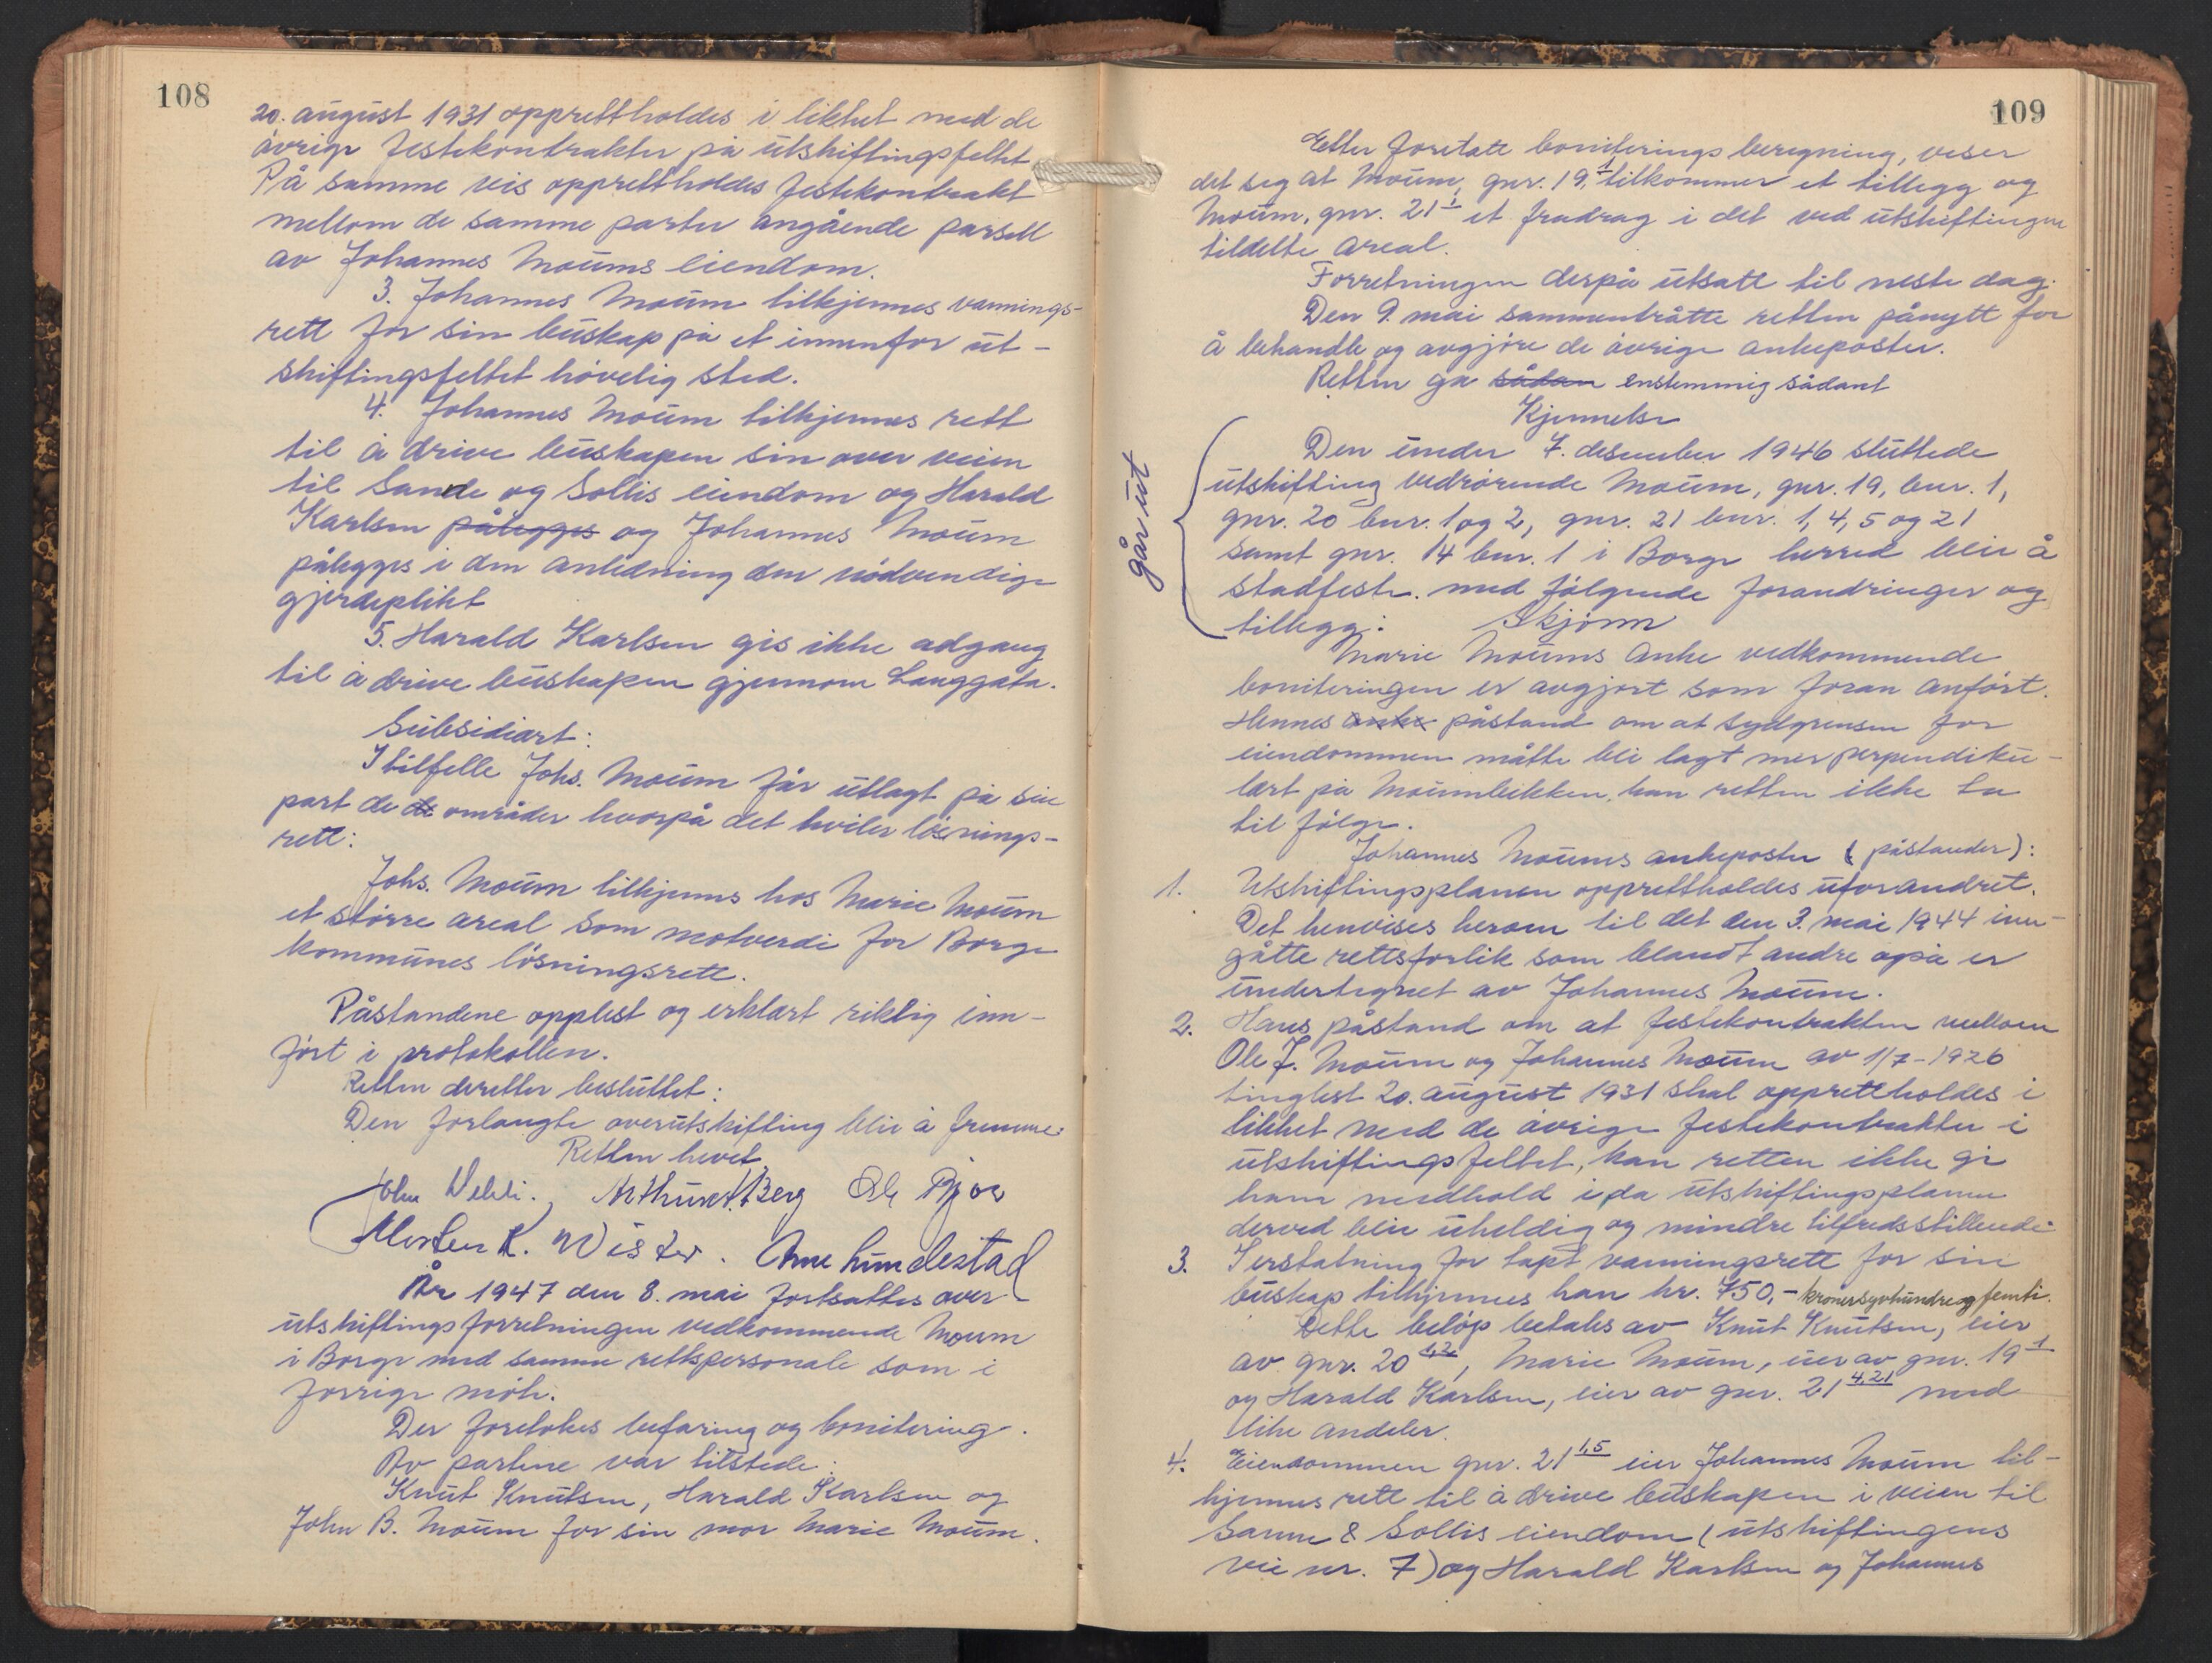 108
20. august 1931 opprettholdes i likhet med de
øvrige festekontrakter på utskiftingsfeltet
På samme vis opprettholdes festekontrakt
mellom de samme parter angående parsell
av Johannes Moums eiendom.
3. Johannes Moum tilkjennes vannings-
rett for sin buskap på et innenfor ut-
skiftingsfeltet høvelig sted.
4. Johannes Moum tilkjennes rett
til å drive buskapen sin over veien
til Sande og Sollis eiendom og Harald
Karlsen pålegges og Johannes Moum
pålegges i den anledning den nødvendige
gjerdeplikt
5. Harald Karlsen gis ikke adgang
til å drive buskapen gjennom Langgata.
Subsidiært:
I tilfelle Johs. Moum får utlagt på sin
part de de områder hvorpå det hviler løsnings-
rett:
Johs. Moum tilkjennes hos Marie Moum
et større areal som motverdi for Borge
kommunes løsningsrett.
Påstandene opplest og erklært riktig inn-
ført i protokollen.
Retten deretter besluttet:
Den forlangte overutskifting blir å fremme.
Retten hevet
John Arthur Berg Ole
Morten K. Wister. Arne Lundestad
År 1947 den 8. mai fortsattes over-
utskiftingsforretningen vedkommende Moum
i Borge med samme rettspersonale som i
forrige møte.
Der foretokes befaring og bonitering.
Av partene var tilstede:
Knut Knutsen, Harald Karlsen og
John B. Moum for sin mor Marie Moum.
109
Etter foretatt boniteringsberegning, viser
det seg at Moum, gnr. 19,1 tilkommer et tillegg og
Moum, gnr. 21 1 et fradrag i det ved utskiftingen
tildelte areal.
Forretningen derpå utsatt til neste dag.
Den 9. mai sammentrådte retten pånytt for
å behandle og avgjøre de øvrige ankeposter.
Retten ga sådan enstemmig sådant
Kjennelse
går ut
Den under 7. desember 1946 sluttede
utskifting vedrørende Moum, gnr. 19, bnr. 1,
gnr. 20 bnr. 1 og 2, gnr. 21 bnr. 1, 4, 5 og 21
samt gnr. 14 bnr. 1 i Borge herred blir å
stadfeste. med følgende forandringer og
tillegg: Skjønn
Marie Moums anke vedkommende
boniteringen er avgjort som foran anført.
Hennes anke påstand om at sydgrensen for
eiendommen måtte bli lagt mer perpendiku-
lært på Moumbekken, kan retten ikke ta
til følge.
Johannes Moums ankeposter ( påstander):
1. Utskiftingsplanen opprettholdes uforandret.
Det henvises herom til det den 3. mai 1944 inn-
gåtte rettsforlik som blandt andre også er
undertegnet av Johannes Moum.
2. Hans påstand om at festekontrakten mellom
Ole J. Moum og Johannes Moum av 1/7-1926
tinglest 20. august 1931 skal opprettholdes i
likhet med de øvrige festekontrakter i
utskiftingsfeltet, kan retten ikke gi
ham medhold i, da utskiftingsplanen
derved blir uheldig og mindre tilfredsstillende.
3. I erstatning for tapt vanningsrett for sin
buskap tilkjennes han kr. 750,- kronersyvhundreogfemti.
Dette beløp betales av Knut Knutsen, eier
av gnr. 20 1,2, Marie Moum, eier av gnr. 19 1
og Harald Karlsen, eier av gnr. 21 4,21 med
like andeler.
4. Eiendommen gnr. 21 1,5 eier Johannes Moum til-
kjennes rett til å drive buskapen i veien til
Sanne & Sollis eiendom (utskiftingens
vei nr. 7) og Harald Karlsen og Johannes